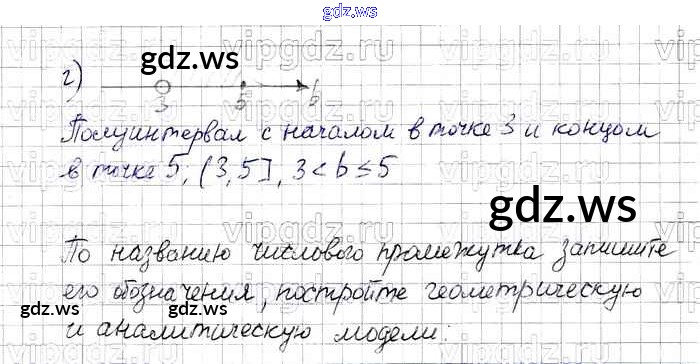 gdz.ws
г) gdz.ws
3 5 b
Полуинтервал с началом в точке 3 и концом
в точке 5, (3,5], 3<b≤5
gdz.ws
По названию числового промежутка запишите
его обозначения, постройте геометрическую
gdz.ws gdz.ws
и аналитическую модели: